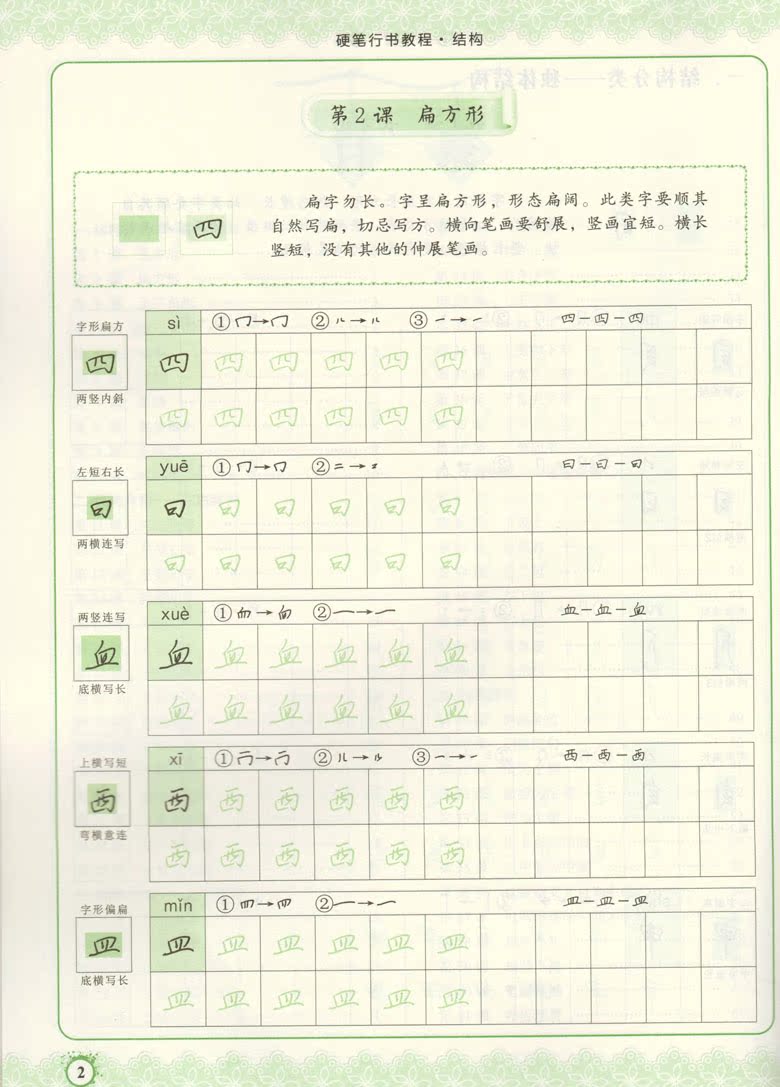 硬笔行书教程·结构
第2课 扁方形
四
扁字勿长。字呈扁方形，形态扁阔。此类字要顺其
自然写扁，切忌写方。横向笔画要舒展，竖画宜短。横长
竖短，没有其他的伸展笔画。
字形扁方
四
两竖内斜
sì ① → ② → ③ → 四-四-四
四 四 四 四 四 四
四 四 四 四 四 四
左短右长
曰
两横连写
yuē ① → ② → 曰-曰-曰
曰 曰 曰 曰 曰 曰
曰 曰 曰 曰 曰 曰
两竖连写
血
底横写长
xuè ① → ② → 血-血-血
血 血 血 血 血 血
血 血 血 血 血 血
上横写短
西
弯横意连
xī ① → ② → ③ → 西-西-西
西 西 西 西 西 西
西 西 西 西 西 西
字形偏扁
皿
底横写长
mǐn ① → ② → 皿-皿-皿
皿 皿 皿 皿 皿 皿
皿 皿 皿 皿 皿 皿
2